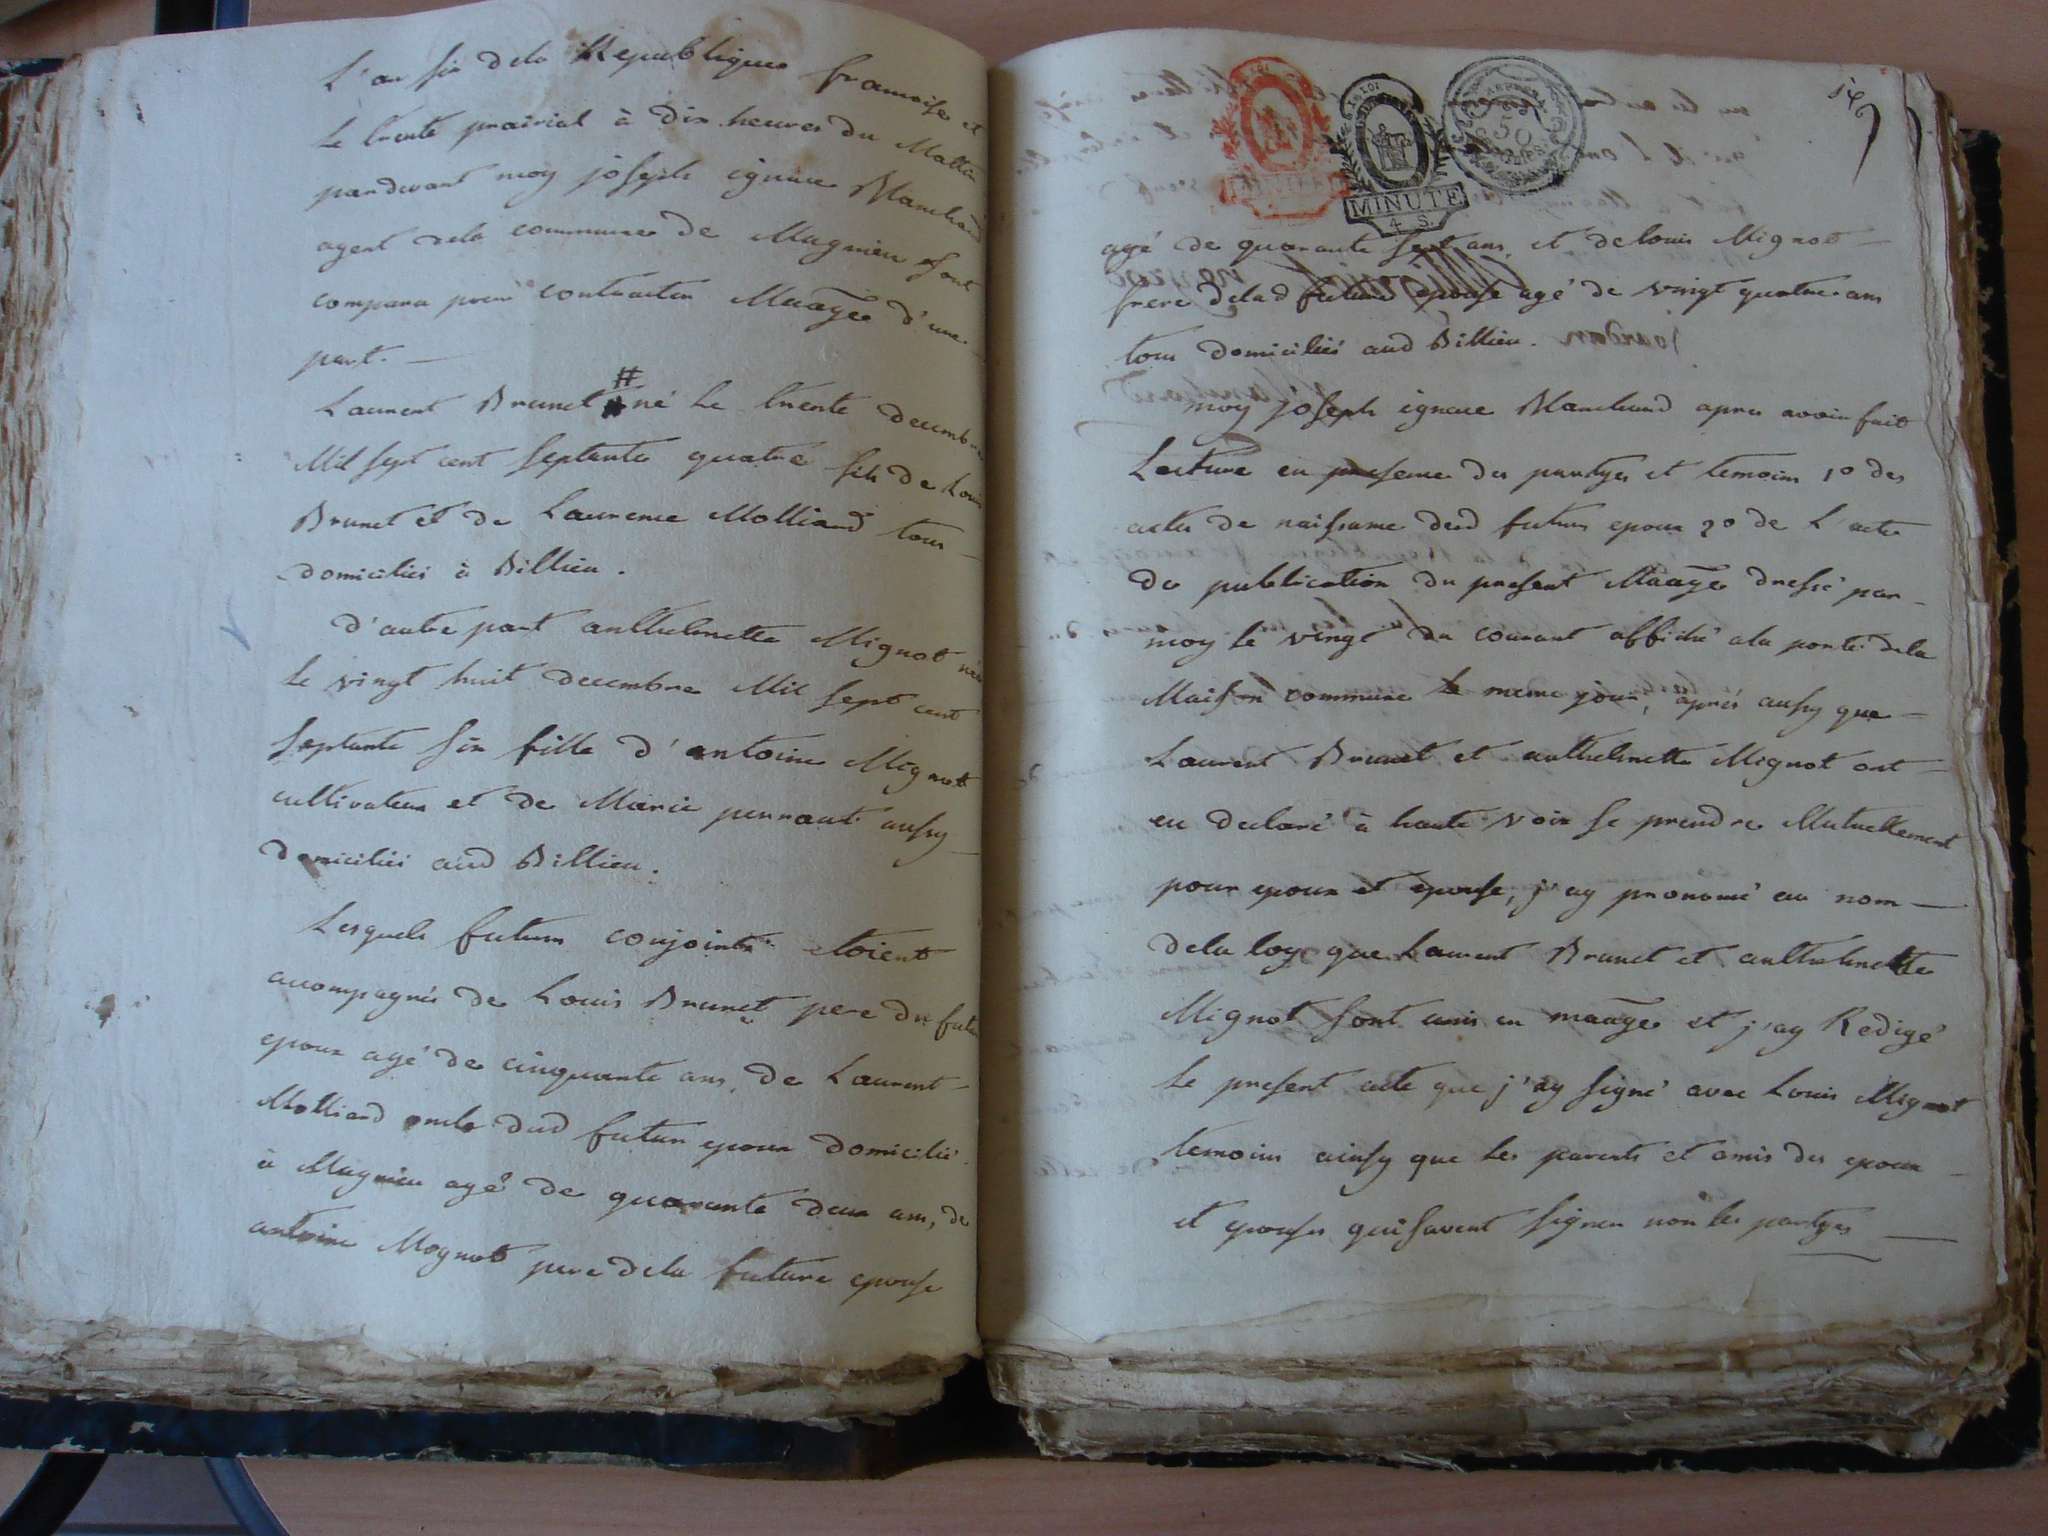 L'an six dela Republique francoise et
le trente prairial à dix heures du Mattin
pardevant moy joseph ignace Blanchard
agent dela commune de Magnieu sont
comparu pour contracter Maãge d'une
part. —
Laurent Brunet # né le trente decembre
Mil sept cent septante quatre fils de Louis
Brunet et de Laurence Molliard tous
domiciliés à Billieu.
D'autre part anthelmette Mignot née
le vingt huit decembre Mil sept cent
septante six fille d'antoine Mignot
cultivateur et de Marie pernaut aussy
domiciliés aud Billieu.
Lesquels futurs conjoints etoient
accompagnés de Louis Brunet pere du futur
epoux agé de cinquante ans, de Laurent
Molliard oncle dud futur epoux domicilié
à Magnieu agé de quarante deux ans, de
antoine Mognot pere dela future epouse
MINUTE
4 S.
50
agé de quarante sept ans, et de louis Mignot
frere delad future epouse agé de vingt quatre ans
tous domiciliés aud Billieu.
moy joseph ignace Blanchard apres avoir fait
Lecture en presence des partyes et temoins 1º des
actes de naissance desd futurs epoux 2º de L'acte
de publication du present Maãge dressé par
moy le vingt du courant affiché ala porte dela
Maison commune le meme jour, aprés aussy que
Laurent Brunet et anthelmette Mignot ont
eu declaré à haute voix se prendre Mutuellement
pour epoux et epouse, j'ay prononcé au nom
dela loy que Laurent Brunet et anthelmette
Mignot sont unis en maãge et j'ay Redigé
le present acte que j'ay signé avec Louis Mignot
temoins ainsy que les parents et amis des epoux
et epouses qui savent signer non les partyes